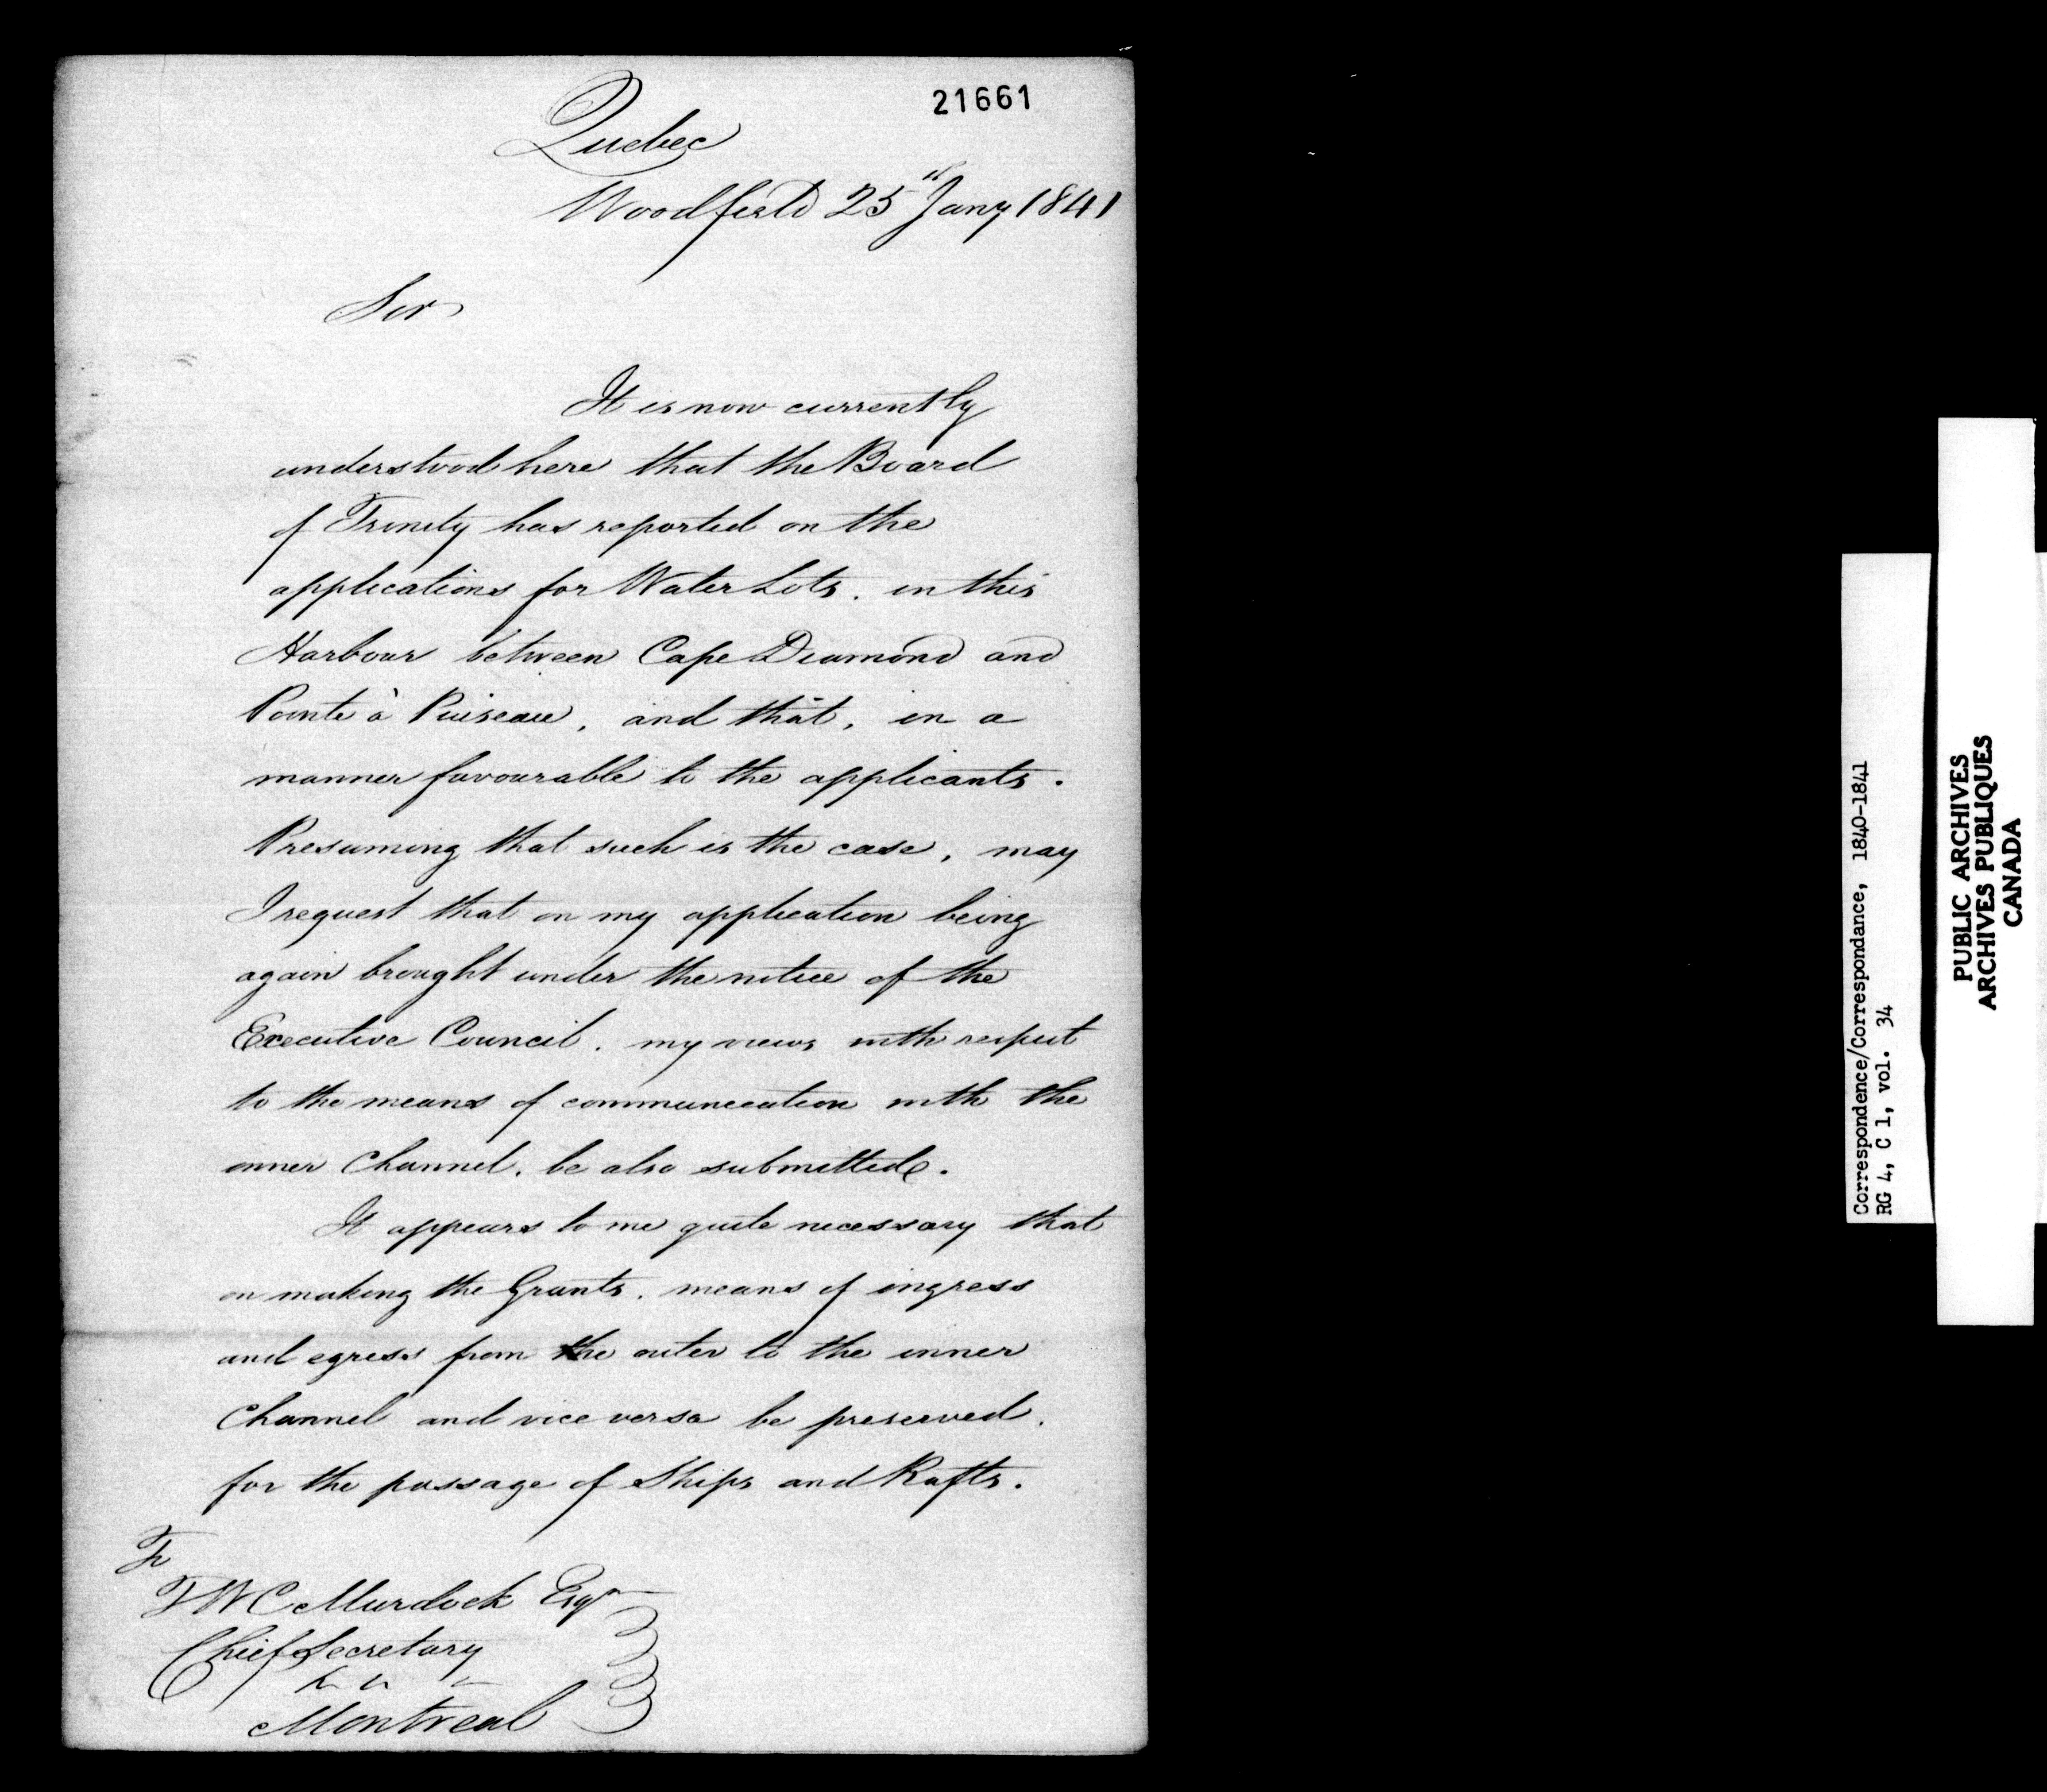 21661
Quebec
Woodfield 25th Jany 1841
Sir
It is now currently
understood here that the Board
of Trinity has reported on the
applications for Water Lots, in this
Harbour between Cape Diamond and
Pointe à Puiseau, and that, in a
manner favourable to the applicants.
Presuming that such is the case, may
I request that on my application being
again brought under the notice of the
Executive Council, my views with respect
to the means of communication with the
inner Channel, be also submitted.
It appears to me quite necessary that
on making the Grants, means of ingress
and egress from the outer to the inner
Channel and vice versa be preserved,
for the passage of Ships and Rafts.
To
T W C Murdock Esqr
Chief Secretary
Montreal
Correspondence/Correspondance, 1840-1841
RG 4, C 1, vol. 34
PUBLIC ARCHIVES
ARCHIVES PUBLIQUES
CANADA